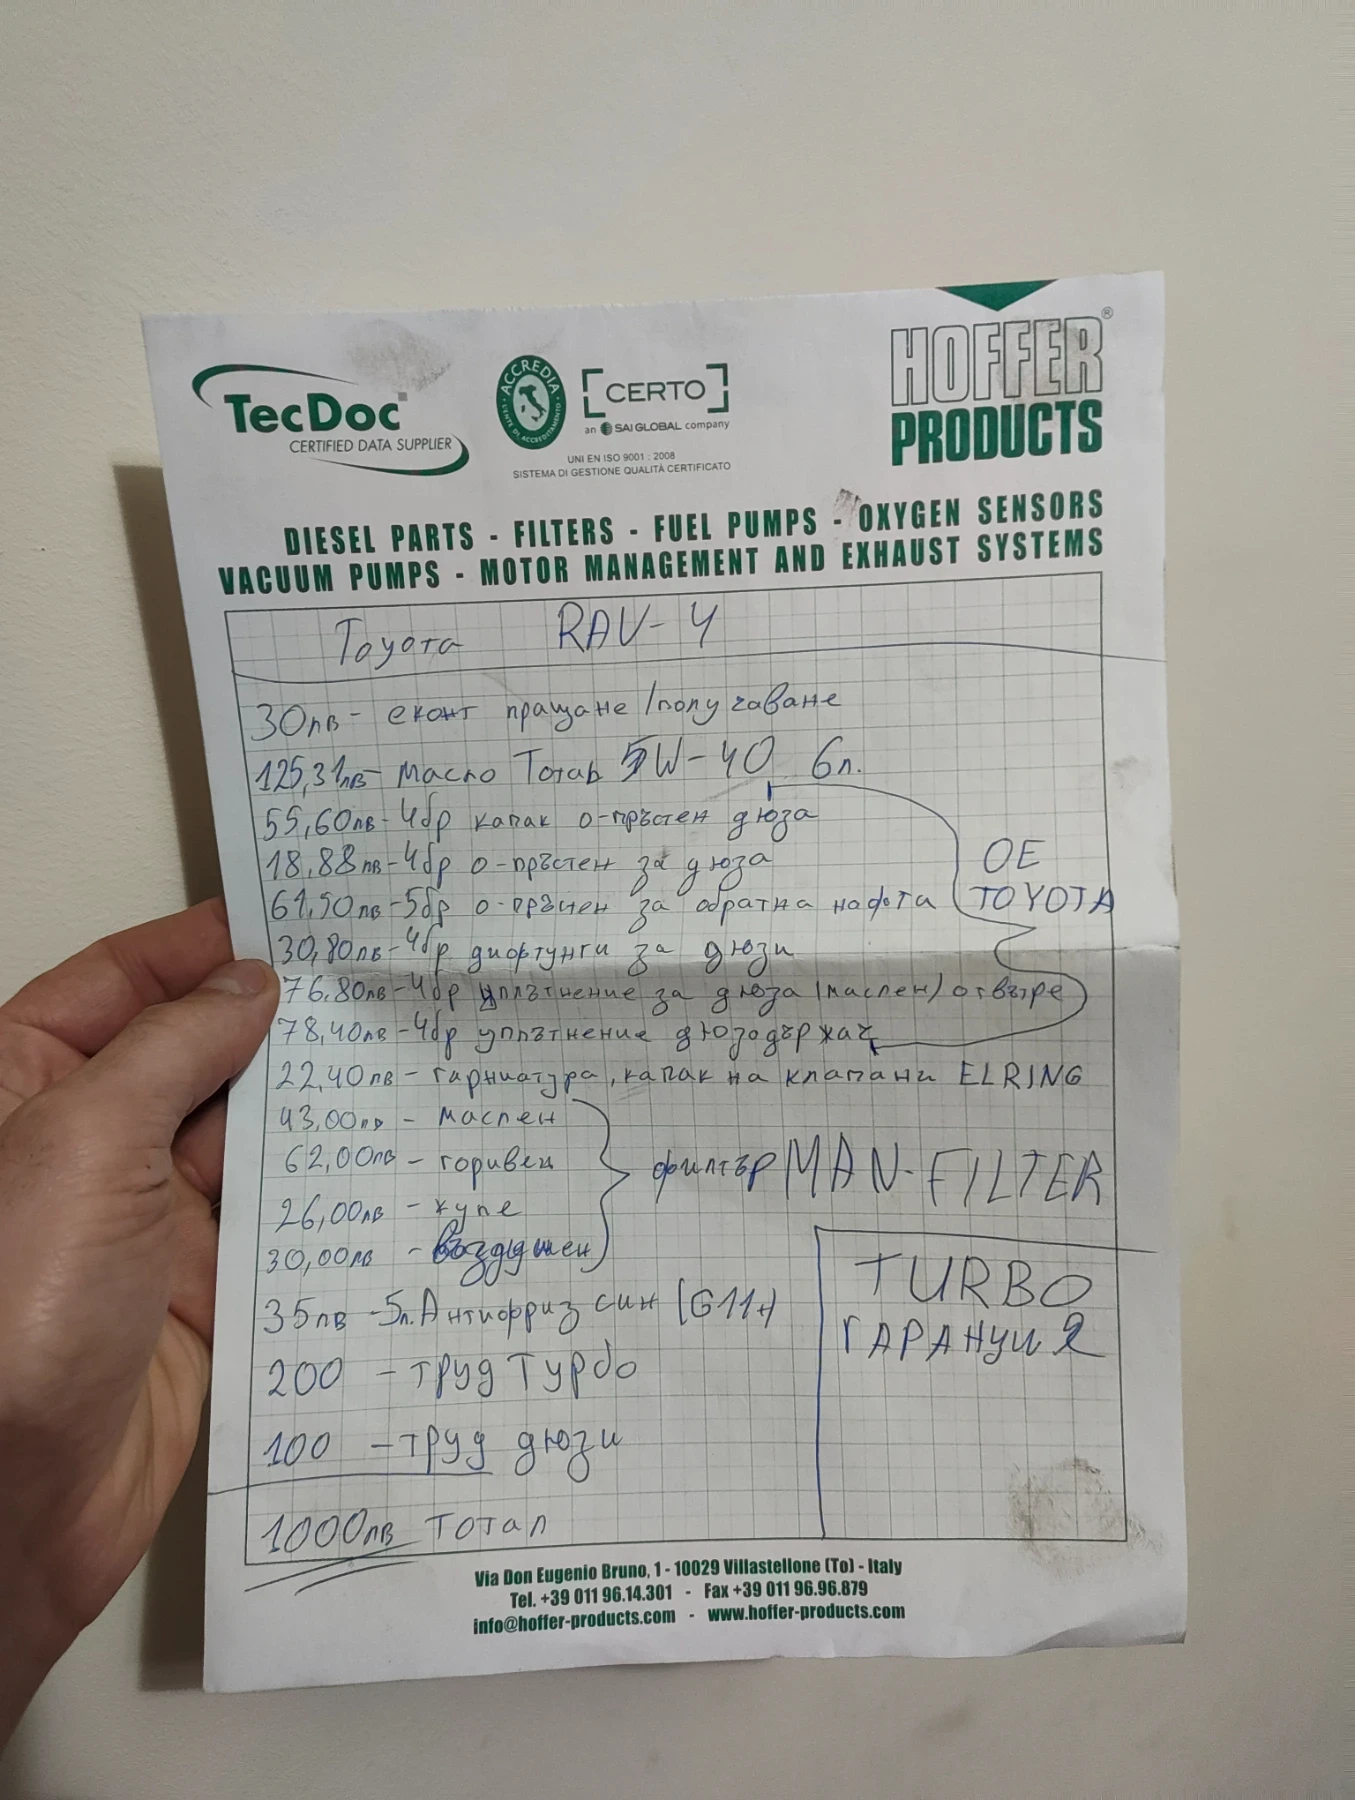 TecDoc
CERTIFIED DATA SUPPLIER
ACCREDIA
ENTE DI ACCREDITAMENTO
CERTO
an SAI GLOBAL company
UNI EN ISO 9001 : 2008
SISTEMA DI GESTIONE QUALITÀ CERTIFICATO
HOFFER®
PRODUCTS
DIESEL PARTS - FILTERS - FUEL PUMPS - OXYGEN SENSORS
VACUUM PUMPS - MOTOR MANAGEMENT AND EXHAUST SYSTEMS
Toyota RAV-4
30лв - еконт пращане/получаване
125,31лв - масло Тотал 5W-40 6л.
55,60лв - 4бр капак о-пръстен дюза
18,88лв - 4бр о-пръстен за дюза
61,50лв - 5бр о-пръстен за обратна нафта
30,80лв - 4бр диофтунги за дюзи
76,80лв - 4бр уплътнение за дюза (маслен) отвътре
78,40лв - 4бр уплътнение дюзодържач
OE
TOYOTA
22,40лв - гарниатура, капак на клапани ELRING
43,00лв - маслен
62,00лв - горивен
26,00лв - купе
30,00лв - въздушен
филтър MAN-FILTER
35лв - 5л. Антифриз син (G11+)
200 - труд Турбо
100 - труд дюзи
1000лв тотал
TURBO
ГАРАНЦИЯ
Via Don Eugenio Bruno, 1 - 10029 Villastellone (To) - Italy
Tel. +39 011 96.14.301 - Fax +39 011 96.96.879
info@hoffer-products.com - www.hoffer-products.com